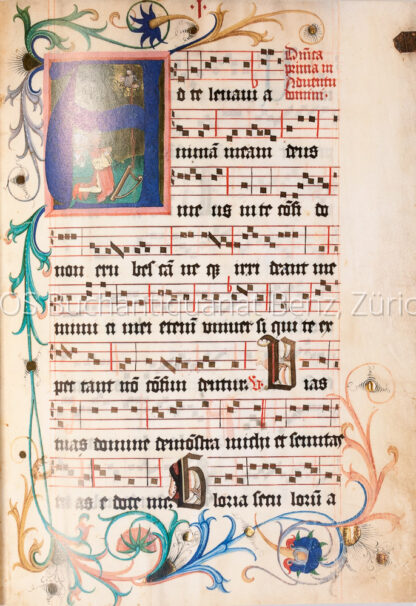 Dnica
prima in
adventu
domini.
d te levavi a
nimā meam deus
me us in te cōfi do
non eru bes cā ne qz irri deant me
inimi ci mei etenim univer si qui te ex
pec tant nō cōfun dentur. V. Vias
tuas domine demōstra michi et semitas
tu as e doce me. Gloria secu lorū a
OS Buchantiquariat Benz, Züric